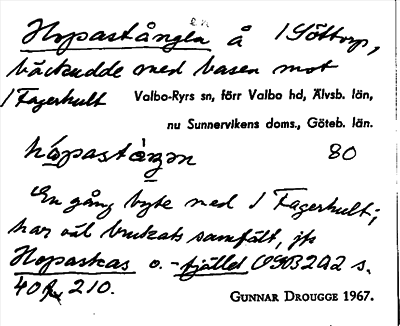 en
Hopastången å 1 Göttorp,
bäckudde med basen mot
1 Fagerhult Valbo-Ryrs sn, förr Valbo hd, Älvsb. län,
nu Sunnervikens doms., Göteb. län.
hópastàŋən 80
En gång byte med 1 Fagerhult;
har väl brukats samfält, jfr
Hopaskas o. -fjället OGB 2 s.
40 210.
GUNNAR DROUGGE 1967.